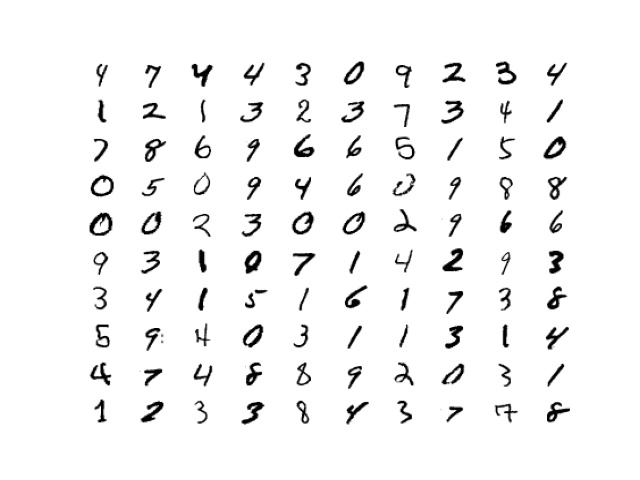 4 7 4 4 3 0 9 2 3 4
1 2 1 3 2 3 7 3 4 1
7 8 6 9 6 6 5 1 5 0
0 5 0 9 4 6 0 9 8 8
0 0 2 3 0 0 2 9 6 6
9 3 1 0 7 1 4 2 9 3
3 4 1 5 1 6 1 7 3 8
5 9 4 0 3 1 1 3 1 4
4 7 4 8 8 9 2 0 3 1
1 2 3 3 8 4 3 7 7 8